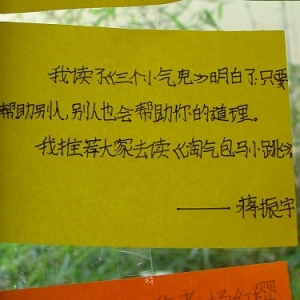 我读了《三个小气鬼》明白了只要
帮助别人,别人也会帮助你的道理。
我推荐大家去读《淘气包马小跳》
——蒋振宇
作者:杨红樱